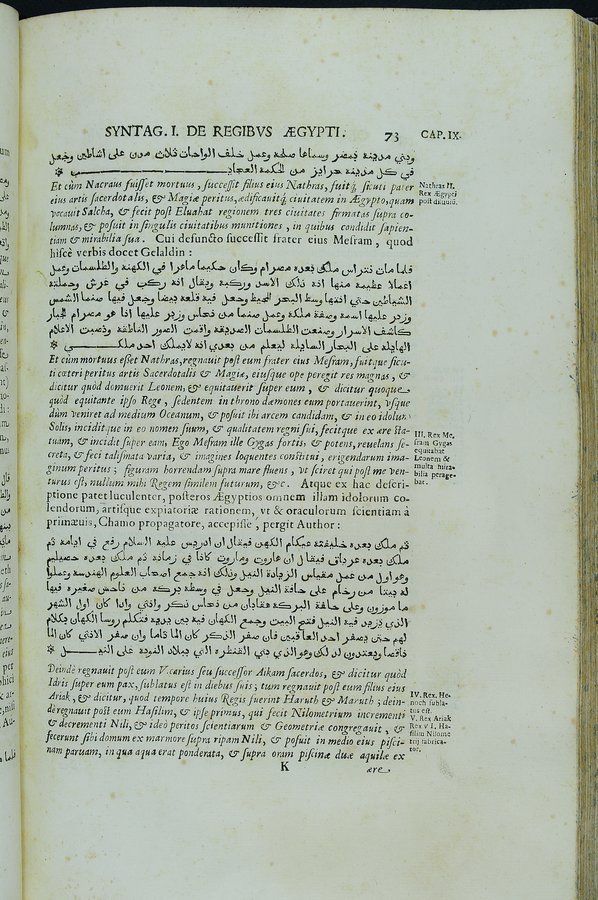 SYNTAG. I. DE REGIBVS ÆGYPTI. 73 CAP. IX.
وبني مدينة بمصر وسماها صلحة وعمل خلف الواحات ثلاث مدن على اشاطين وجعل
في كل مدينة حرايز من الحكمة العجايب *
Et cùm Nacraus fuisset mortuus, successit filius eius Nathras, fuitq́; sicuti pater
eius artis sacerdotalis, & Magiæ peritus, ædificauitq́; ciuitatem in Ægypto, quam
vocauit Salcha, & fecit post Eluahat regionem tres ciuitates firmatas supra co-
lumnas, & posuit in singulis ciuitatibus munitiones, in quibus condidit sapien-
tiam & mirabilia sua. Cui defuncto successit frater eius Mesram, quod
hisce verbis docet Gelaldin:
Nathras II.
Rex Ægypti
post diluuiū.
فلما مات نتراس ملك بعده مصرام وكان حكيما ماهرا في الكهنة والطلسمات وعمل
اعمالا عظيمة منها انه ذلك الاسد وركبه ويقال انه ركب في عرش وحملته
الشياطين حتي انتها وسط البحر المحيط وجعل فيه قلعة بيضا وجعل فيها صنما الشمس
وزبر عليها اسمه وصفة ملكه وعمل صنما من نحاس وزبر عليها انا هو مصرام الجبار
كاشف الاسرار وصنعت الطلسمات الصديقة واقمت الصور الناطقة ونصبت الاعلام
الهايلة على البحار السايلة ليعلم من بعدي انه لايملك احد ملكي *
Et cùm mortuus esset Nathras, regnauit post eum frater eius Mesram, fuitque sicu-
ti cæteri peritus artis Sacerdotalis & Magiæ, eiusque ope peregit res magnas, &
dicitur quòd domuerit Leonem, & equitauerit super eum, & dicitur quoque
quòd equitante ipso Rege, sedentem in throno dæmones eum portauerint, vsque
dùm veniret ad medium Oceanum, & posuit ibi arcem candidam, & in eo idolum
Solis, inciditque in eo nomen suum, & qualitatem regni sui, fecitque ex ære sta-
tuam, & incidit super eam, Ego Mesram ille Gygas fortis, & potens, reuelans se-
creta, & feci talismata varia, & imagines loquentes constitui, erigendarum ima-
ginum peritus; figuram horrendam supra mare fluens, vt sciret qui post me ven-
turus est, nullum mihi Regem similem futurum, &c. Atque ex hac descri-
ptione patet luculenter, posteros Ægyptios omnem illam idolorum co-
lendorum, artisque expiatoriæ rationem, vt & oraculorum scientiam à
primæuis, Chamo propagatore, accepisse, pergit Author:
III. Rex Me,
sram Gygas
equitabat
Leonem &
multa mira-
bilia perage-
bat.
ثم ملك بعده خليفته عيكام الكهن فيقال ان ادريس علية السلام رفع في ايامة ثم
ملك بعده عرياق فيقال ان هاروت وماروت كانا في زمانه ثم ملك بعده حصيليم
وهو اول من عمل مقياس الزيادة النيل وذلك انه جمع اصحاب العلوم الهندسة وعملوا
له بيتا من رخام على حافة النيل وجعل في وسطة بركه من ناحس صغيره فيها
ما موزون وعلى حافة البركه عقابان من نحاس ذكر وانثي وادا كان اول الشهر
الذي يزيد فيه النيل فتح البيت وجمع الكهان فية بين يديه فتكلم روسا الكهان بكلام
لهم حتي يصفر احد العاقبين فان صفر الذكر كان الما تاما وان صفر الانثي كان الما
ناقصا ويعتدون لذلك وهو الذي بني القنطره التي ببلاد النوبة على النيل *
Deindè regnauit post eum Vicarius seu successor Aikam sacerdos, & dicitur quòd
Idris super eum pax, sublatus est in diebus suis; tum regnauit post eum filius eius
Ariak, & dicitur, quod tempore huius Regis fuerint Haruth & Maruth; dein-
dè regnauit post eum Hasilim, & ipse primus, qui fecit Nilometrium incrementi
& decrementi Nili, & ideò peritos scientiarum & Geometriæ congregauit, &
fecerunt sibi domum ex marmore supra ripam Nili, & posuit in medio eius pisci-
nam paruam, in qua aqua erat ponderata, & supra oram piscinæ duæ aquilæ ex
IV. Rex He-
noch subla-
tus est.
V. Rex Ariak
Rex V I. Ha-
silim Nilome
trij fabrica-
tor.
K ære